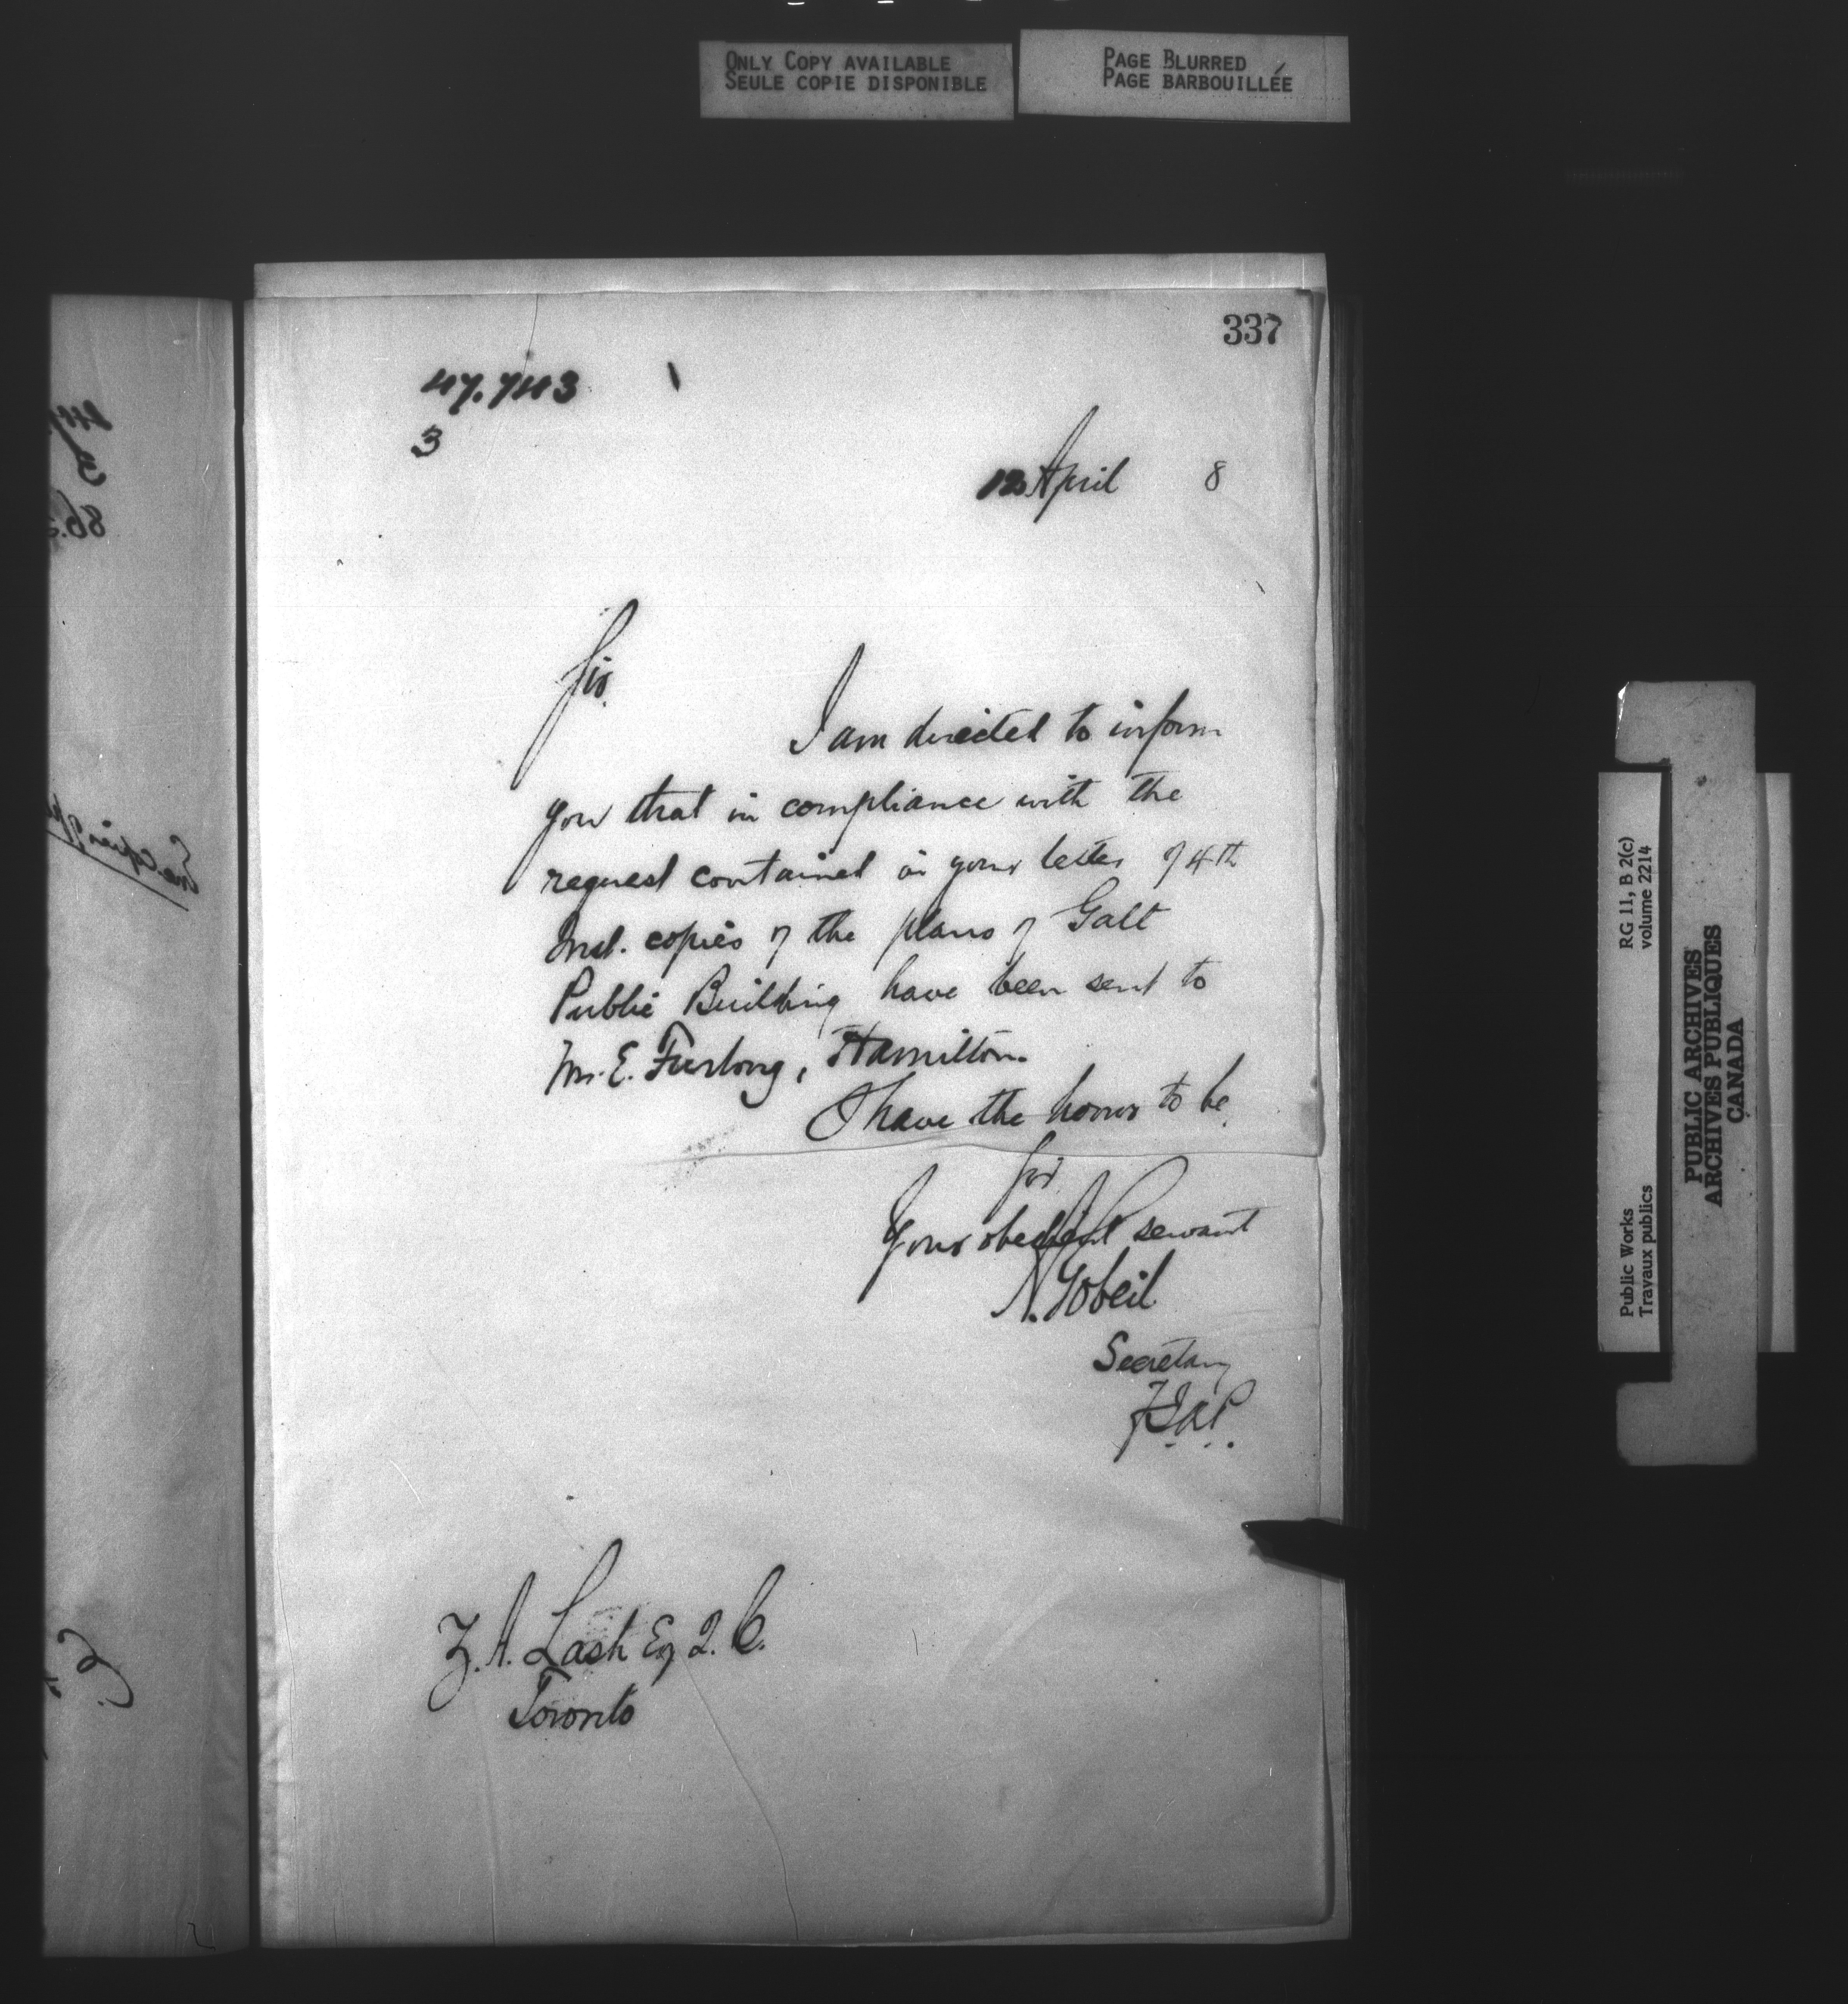 ONLY COPY AVAILABLE
SEULE COPIE DISPONIBLE
PAGE BLURRED
PAGE BARBOUILLÉE
337
47.743
3
12 April 8
Sir.
I am directed to inform
you that in compliance with the
request contained in your letter of 4th
Inst. copies of the plans of Galt
Public Building have been sent to
Mr. E. Furlong, Hamilton.
I have the honor to be
Sir
Your obedient servant
A. Gobeil
Secretary
Z. A. Lash Esq Q. C.
Toronto
RG 11, B 2(c)
volume 2214
Public Works
Travaux publics
PUBLIC ARCHIVES
ARCHIVES PUBLIQUES
CANADA